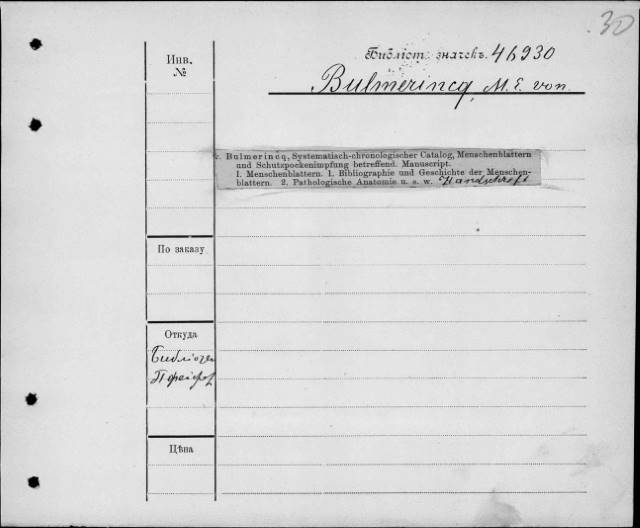 30
Инв.
№
Библіот. значекъ. 46930
Bulmerincq, M. E. von.
v. Bulmerincq, Systematisch-chronologischer Catalog, Menschenblattern
und Schutzpockenimpfung betreffend. Manuscript.
I. Menschenblattern. 1. Bibliographie und Geschichte der Menschen-
blattern. 2. Pathologische Anatomie u. s. w. Handschrift
По заказу
Откуда
Библіотек
Пфейфер
Цѣна